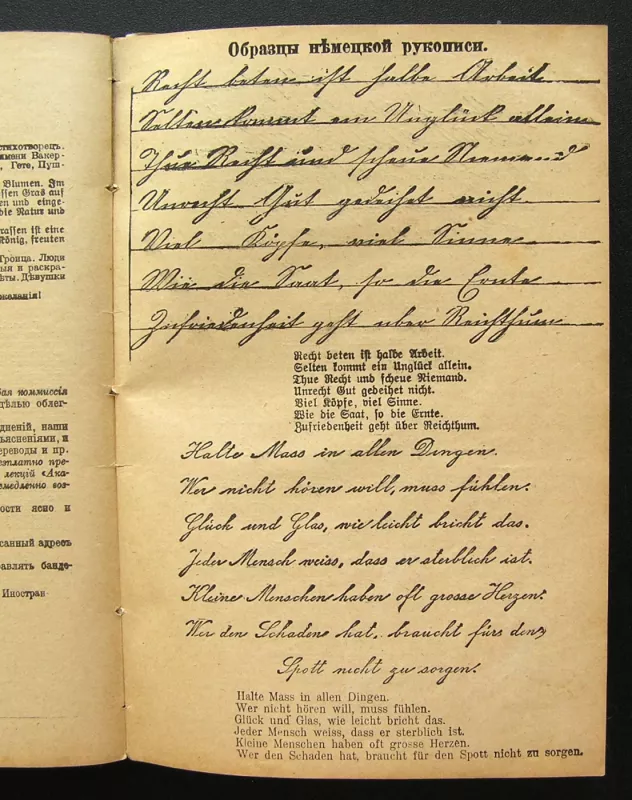 стихотворецъ.
имени Вакер-
, Гете, Пуш-
Blumen. Im
ssen Gras auf
en und einge-
die Natur und
rassen ist eine
König, freuten
Троица. Люди
ыя и раскра-
ѣты. Дѣвушки
желанія!
бая коммиссія
дѣлью облег-
дненій, наши
ъясненіями, и
ереводы и пр.
езплатно пре-
лекцій «Ака-
емедленно воз-
ости ясно и
санный адресъ
авлять банде-
Иностран-
Образцы нѣмецкой рукописи.
Recht beten ist halbe Arbeit
Selten kommt ein Unglück allein
Thue Recht und scheue Niemand
Unrecht Gut gedeihet nicht
Viel Köpfe, viel Sinne
Wie die Saat, so die Ernte
Zufriedenheit geht uber Reichthum
Recht beten ist halbe Arbeit.
Selten kommt ein Unglück allein.
Thue Recht und scheue Niemand.
Unrecht Gut gedeihet nicht.
Viel Köpfe, viel Sinne.
Wie die Saat, so die Ernte.
Zufriedenheit geht über Reichthum.
Halte Mass in allen Dingen.
Wer nicht hören will, muss fühlen.
Glück und Glas, wie leicht bricht das.
Jeder Mensch weiss, dass er sterblich ist.
Kleine Menschen haben oft grosse Herzen.
Wer den Schaden hat, braucht fürs den
Spott nicht zu sorgen.
Halte Mass in allen Dingen.
Wer nicht hören will, muss fühlen.
Glück und Glas, wie leicht bricht das.
Jeder Mensch weiss, dass er sterblich ist.
Kleine Menschen haben oft grosse Herzen.
Wer den Schaden hat, braucht für den Spott nicht zu sorgen.